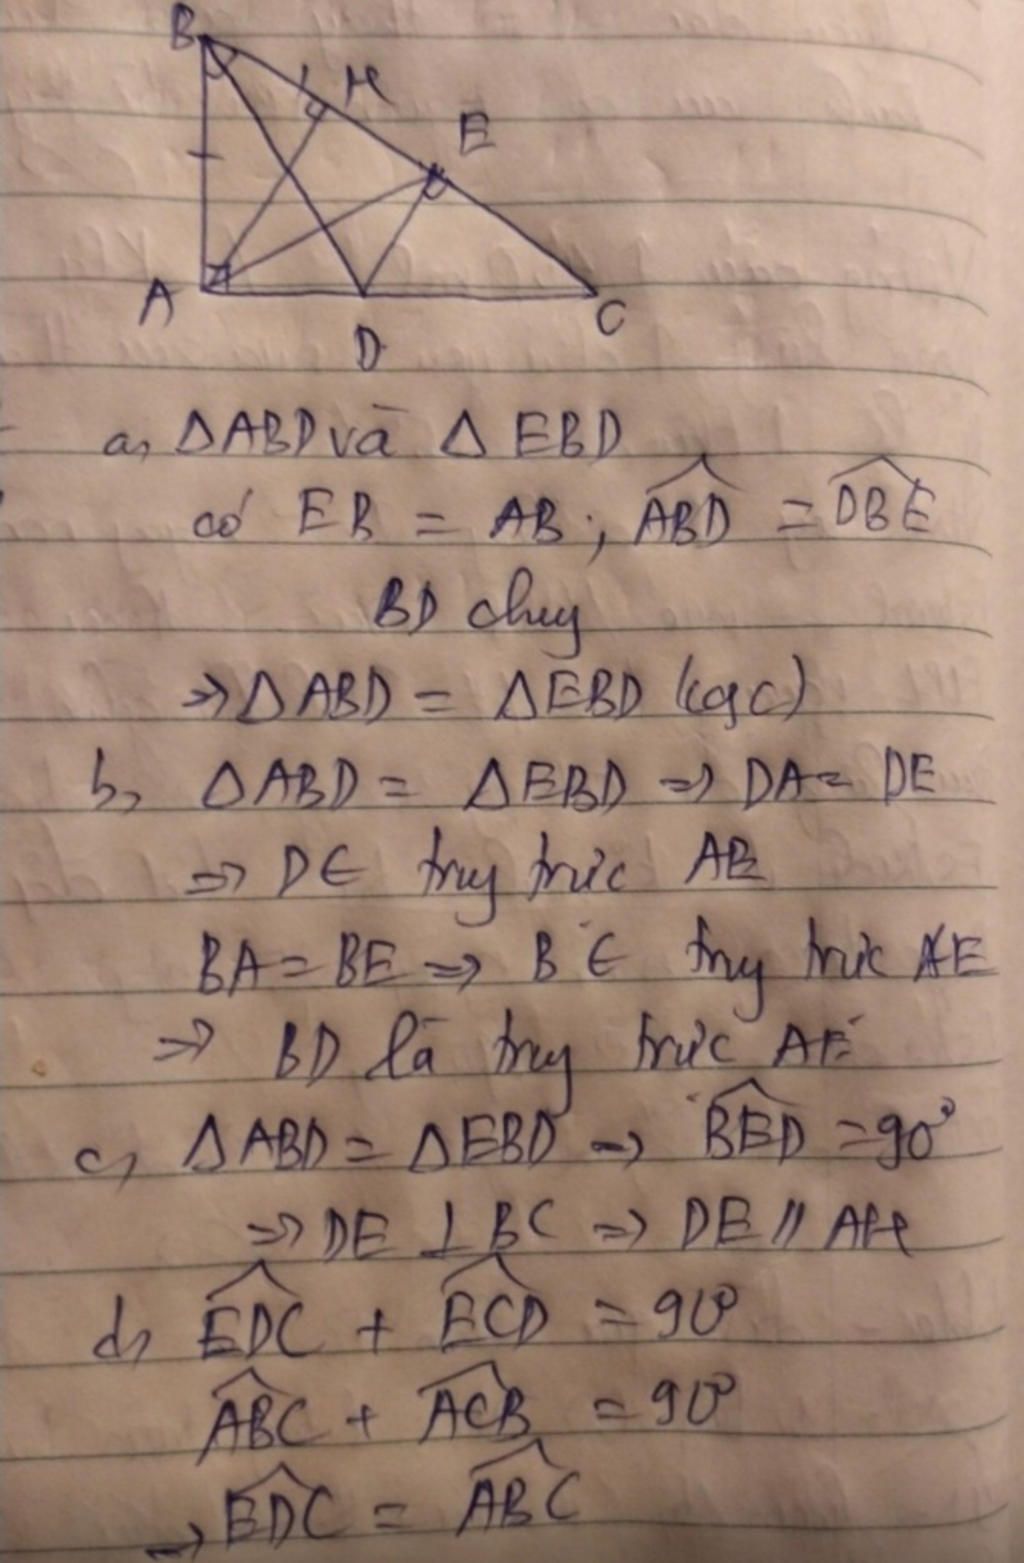 B
H
E
A
D
C
a, ΔABD và Δ EBD
có EB = AB ; \widehat{ABD} = \widehat{DBE}
BD chug
=> ΔABD = ΔEBD (cgc)
b, ΔABD = ΔEBD => DA = DE
=> D ∈ trug trực AE
BA = BE => B ∈ trug trực AE
=> BD là trug trực AE
c, ΔABD = ΔEBD → \widehat{BED} = 90°
=> DE ⊥ BC => DE // AH
d, \widehat{EDC} + \widehat{ECD} = 90°
\widehat{ABC} + \widehat{ACB} = 90°
→ \widehat{EDC} = \widehat{ABC}